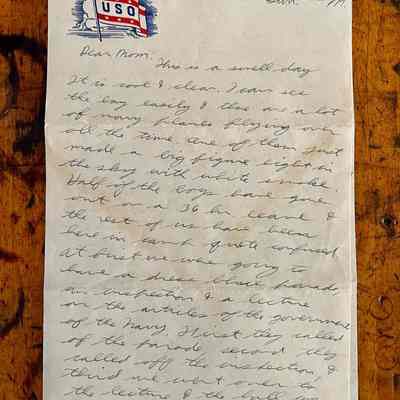 USO
Sun.
Dear Mom:
This is a swell day
It is cool & clear. I can see
the bay easily & there are a lot
of navy planes flying over
all the time one of them just
made a big figure eight in
the sky with white smoke.
Half of the boys have gone
out on a 36 hr leave &
the rest of us have been
here in camp quite confused
At first we were going to
have a dress blues parade
an inspection & a lecture
on the articles of the government
of the Navy. First they called
off the parade, second they
called off the inspection &
third we went over to
the lecture & the